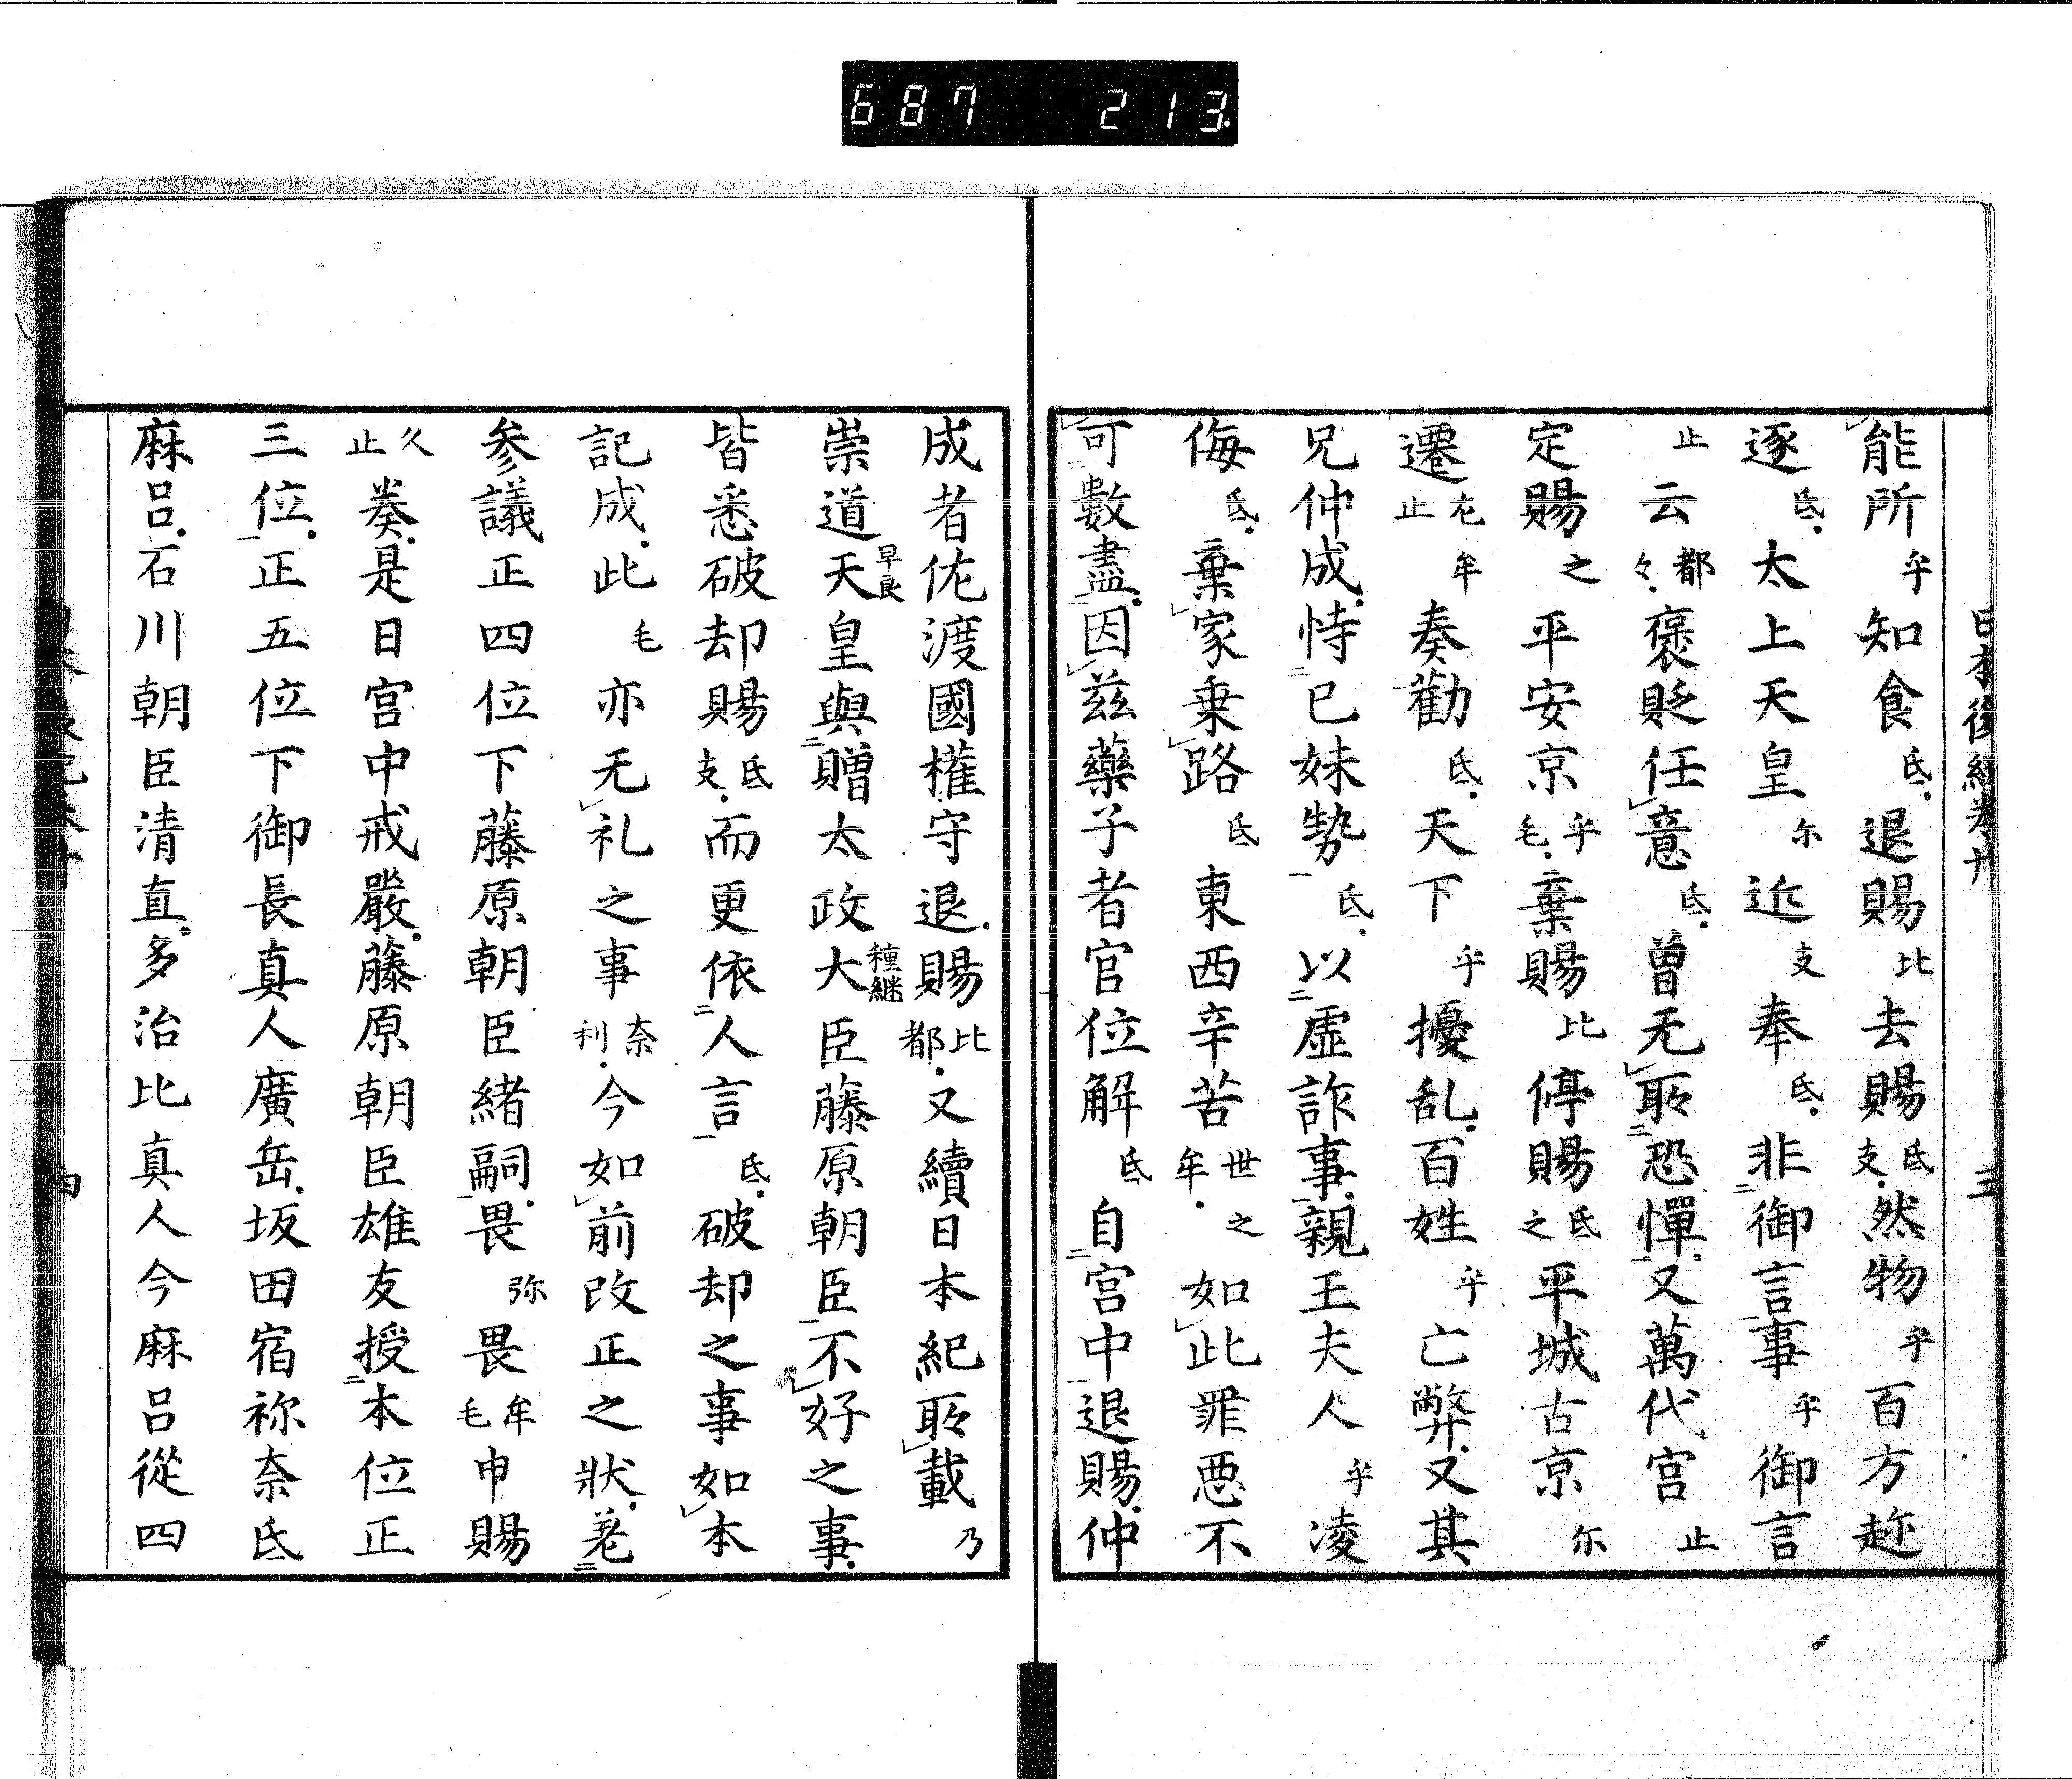 687 213
日本後紀卷廿 三
能所乎知食氐退賜比去賜氐支然物乎百方趂
逐氐太上天皇尓近支奉氐非御言事乎御言
止云都々褒貶任意氐曽无所恐憚又萬代宮止
定賜之平安京乎毛棄賜比停賜氐之平城古京尓
遷左牟止奏勸氐天下乎擾乱百姓乎亡弊又其
兄仲成恃己妹勢氐以虛詐事親王夫人乎凌
侮氐棄家乗路氐東西辛苦世牟之如此罪悪不
可數盡因茲藥子者官位解氐自宮中退賜仲
成者佐渡國權守退賜比都又續日本紀所載乃
崇道天皇早良與贈太政大臣種継藤原朝臣不好之事
皆悉破却賜氐支而更依人言氐破却之事如本
記成此毛亦无礼之事奈利今如前改正之狀差
参議正四位下藤原朝臣緒嗣畏弥畏牟毛申賜
久止奏是日宮中戒嚴藤原朝臣雄友授本位正
三位正五位下御長真人廣岳坂田宿祢奈氐
麻呂石川朝臣清直多治比真人今麻呂從四
四